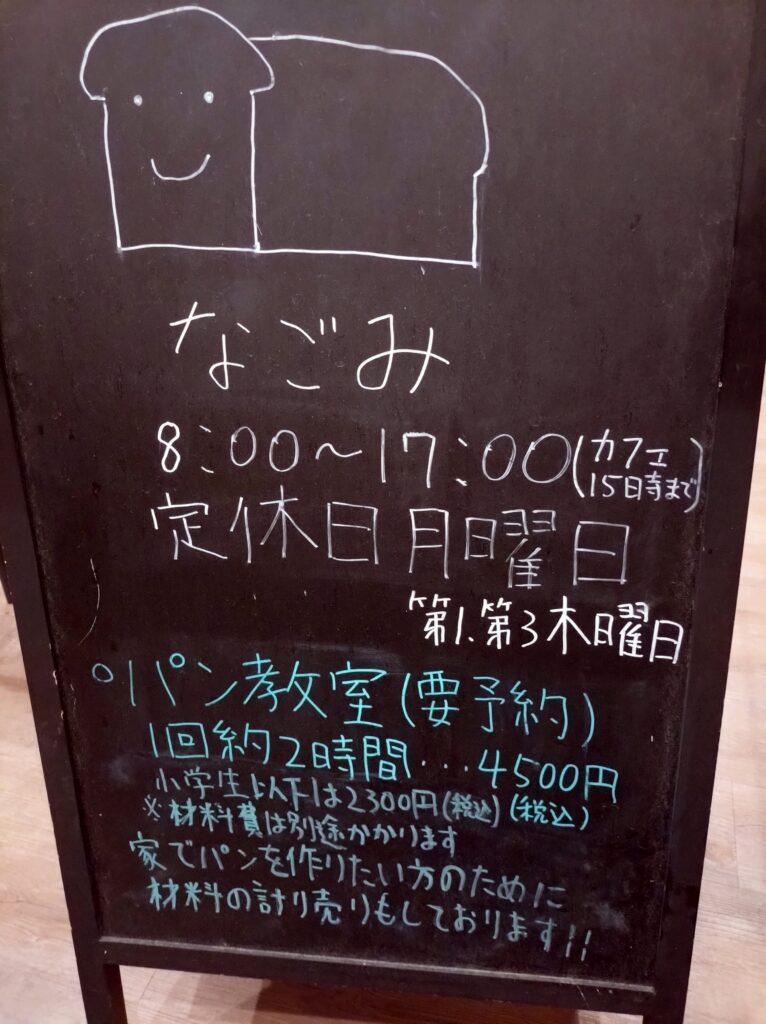 なごみ
8:00～17:00(カフェ
15時まで)
定休日月曜日
第1.第3木曜日
○パン教室(要予約)
1回約2時間…4500円
(税込)
小学生以下は2300円(税込)
※材料費は別途かかります
家でパンを作りたい方のために
材料の計り売りもしております!!